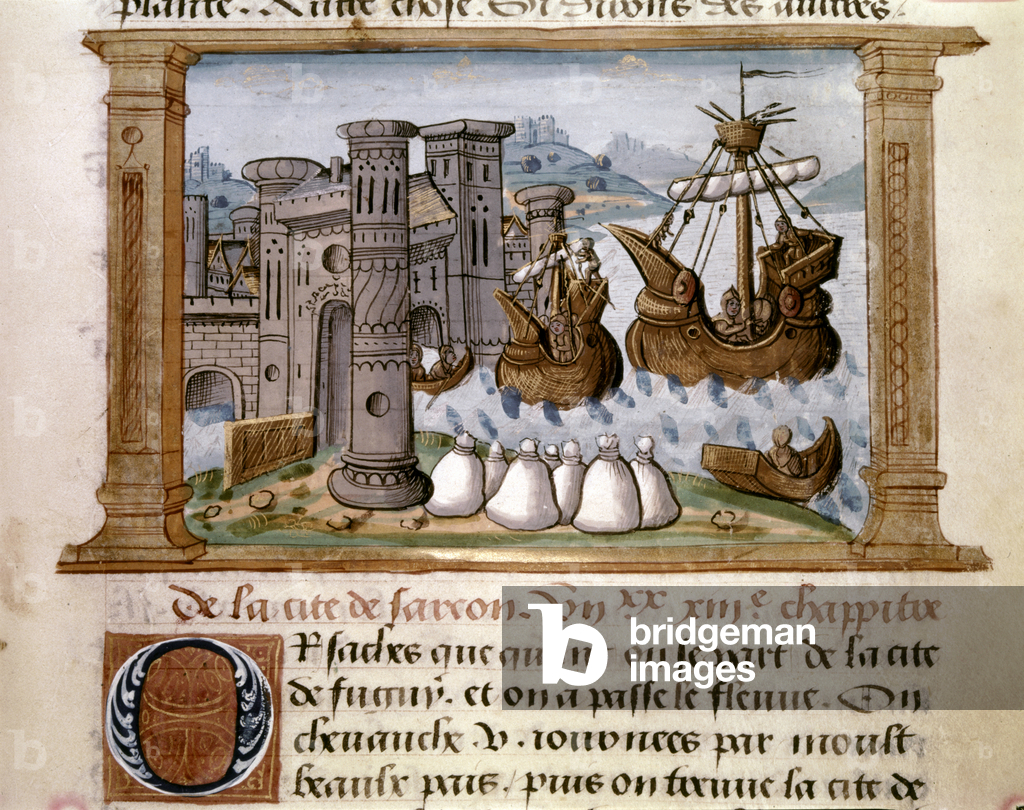 plante. Autre chose. Si dirons des autres
De la cite de sarcon. Du xx xiiie. chappitre
Or saches que quant on se part de la cite
de fuguy. et on a passe le fleuue. On
cheuauche .v. iournees par moult
beaulx pais / puis on treuue la cite de
bridgeman
images